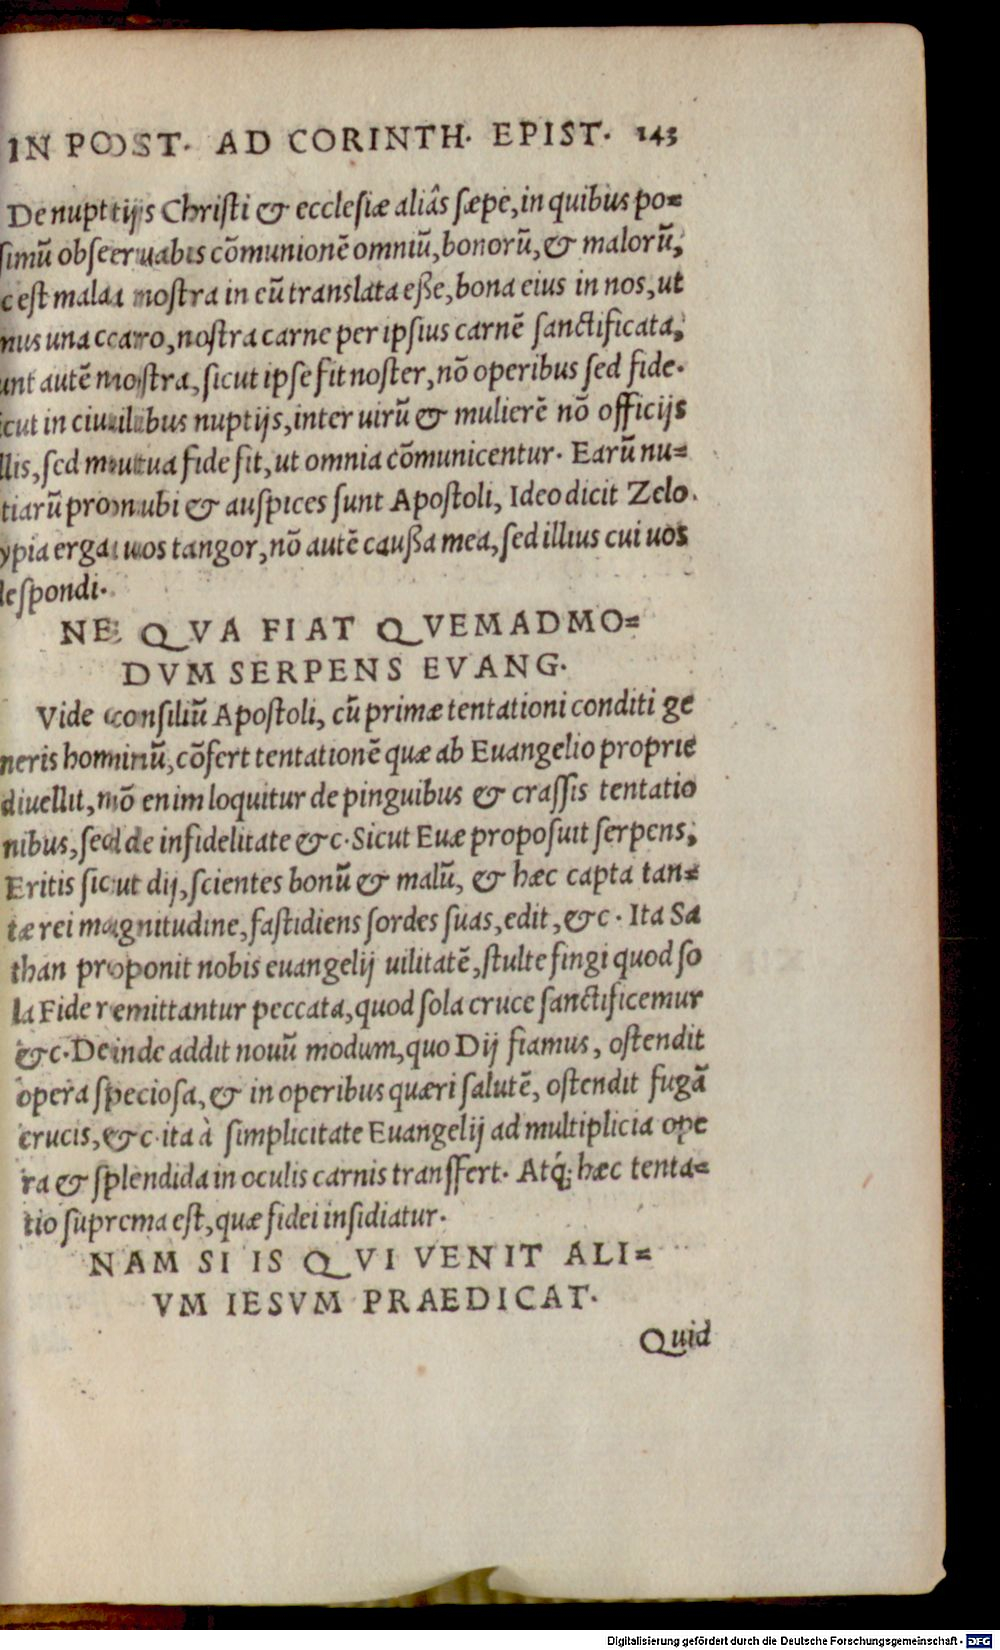 IN POST. AD CORINTH. EPIST. 143
De nuptijs Christi & ecclesiæ aliâs sæpe, in quibus po=
simū obseruabis cōmunionē omniū, bonorū, & malorū,
c est mala nostra in eū translata eße, bona eius in nos, ut
mus una caro, nostra carne per ipsius carnē sanctificata,
unt autē nostra, sicut ipse fit noster, nō operibus sed fide.
icut in ciuilibus nuptijs, inter uirū & mulierē nō officijs
llis, sed mutua fide fit, ut omnia cōmunicentur. Earū nu=
tiarū pronubi & auspices sunt Apostoli, Ideo dicit Zelo.
ypia erga uos tangor, nō autē caußa mea, sed illius cui uos
despondi.
NE QVA FIAT QVEMADMO=
DVM SERPENS EVANG.
Vide consiliū Apostoli, cū primæ tentationi conditi ge
neris hominū, cōfert tentationē quæ ab Euangelio proprie
diuellit, nō enim loquitur de pinguibus & crassis tentatio
nibus, sed de infidelitate &c. Sicut Euæ proposuit serpens,
Eritis sicut dij, scientes bonū & malū, & hæc capta tan=
tæ rei magnitudine, fastidiens sordes suas, edit, &c. Ita Sa
than proponit nobis euangelij uilitatē, stulte fingi quod so
la Fide remittantur peccata, quod sola cruce sanctificemur
&c. Deinde addit nouū modum, quo Dij fiamus, ostendit
opera speciosa, & in operibus quæri salutē, ostendit fugā
crucis, &c. ita à simplicitate Euangelij ad multiplicia ope
ra & splendida in oculis carnis transfert. Atq́; hæc tenta=
tio suprema est, quæ fidei insidiatur.
NAM SI IS QVI VENIT ALI=
VM IESVM PRAEDICAT.
Quid
Digitalisierung gefördert durch die Deutsche Forschungsgemeinschaft - DFG